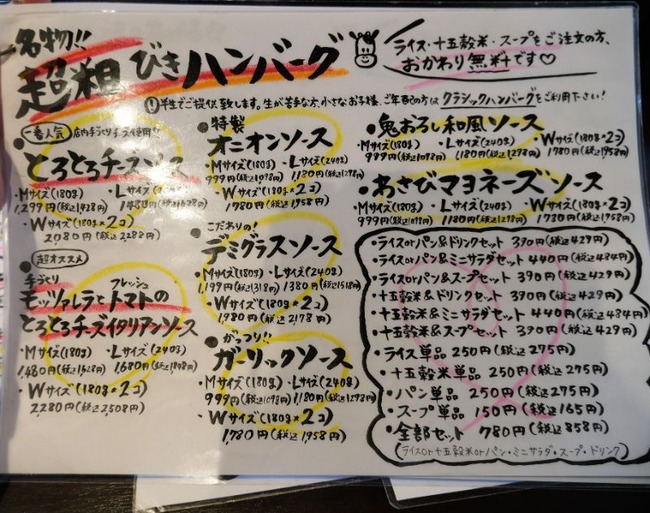 名物!!
超粗びきハンバーグ
ライス・十五穀米・スープをご注文の方、
おかわり無料です♡
!半生でご提供致します。生が苦手な方、小さなお子様、ご年配の方はクラシックハンバーグをご利用下さい!
一番人気
とろとろチーズソース
・Mサイズ(180g)
1,299円(税込1428円)
・Wサイズ(180g×2コ)
2080円(税込2288円)
超オススメ
手づくり
フレッシュ
モッツァレラとトマトの
とろとろチーズイタリアンソース
・Mサイズ(180g) ・Lサイズ(240g)
1,480円(税込1628円)
・Wサイズ(180g×2コ)
2,280円(税込2,508円)
特製
オニオンソース
・Mサイズ(180g) ・Lサイズ(240g)
999円(税込1098円) 1,180円(税込1298円)
・Wサイズ(180g×2コ)
1780円(税込1958円)
こだわりの!
デミグラスソース
・Mサイズ(180g) ・Lサイズ(240g)
1,199円(税込1318円) 1380円(税込1518円)
・Wサイズ(180g×2コ)
1,980円(税込2178円)
がっつり!!
ガーリックソース
・Mサイズ(180g) ・Lサイズ(240g)
999円(税込1098円) 1,180円(税込1298円)
・Wサイズ(180g×2コ)
1,780円(税込1,958円)
鬼おろし和風ソース
・Mサイズ(180g) ・Lサイズ(240g) ・Wサイズ(180g×2コ)
999円(税込1098円) 1180円(税込1298円) 1780円(税込1958円)
わさびマヨネーズソース
・Mサイズ(180g) ・Lサイズ(240g) ・Wサイズ(180g×2コ)
999円(税込1098円) 1180円(税込1298円) 1780円(税込1958円)
・ライスorパン&ドリンクセット 390円(税込429円)
・ライスorパン&ミニサラダセット 440円(税込484円)
・ライスorパン&スープセット 390円(税込429円)
・十五穀米&ドリンクセット 390円(税込429円)
・十五穀米&ミニサラダセット 440円(税込484円)
・十五穀米&スープセット 390円(税込429円)
・ライス単品 250円(税込275円)
・十五穀米単品 250円(税込275円)
・パン単品 250円(税込275円)
・スープ単品 150円(税込165円)
・全部セット 780円(税込858円)
(ライスor十五穀米orパン・ミニサラダ・スープ・ドリンク)